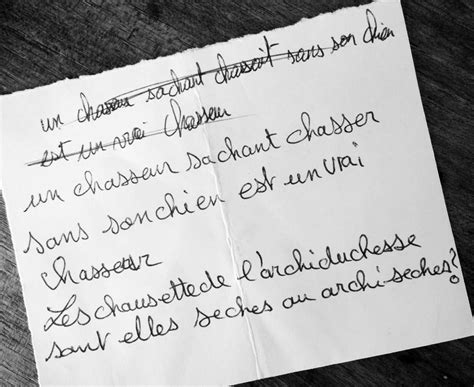 un chasseur sachant chassait sans son chien
est un vrai chasseur
un chasseur sachant chasser
sans sonchien est un vrai
chasseur
Les chausettede l'archiduchesse
sont elles seches ou archi seches?